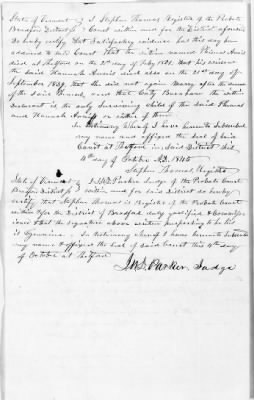 State of Vermont } I Stephen Thomas Register of the Probate
Bradford District } Court within and for the District aforesaid
do hereby certify that Satisfactory evidence has this day been
adduced to said Court that the within named Phineas
died at Thetford on the 2nd day of July 18 that his widow
the said Hannah died also on the 21st day of
September 1839, that she did not again Marry after the
of the said Phineas, and that Burnham the within
declarant is the only Surviving Child of the said Phineas
and Hannah or either of them
In testimony whereof I have hereunto Subscribed
my name and affixed the Seal of said
Court at Thetford in said District this
4th day of October A.D. 1845
Stephen Thomas, Register
State of Vermont } I Parker Judge of the Probate Court
Bradford District } within and for said District do hereby
certify that Stephen Thomas is Register of the Probate Court
within & for the District of Bradford duly qualified &
and that the signature above written purporting to be his
is Genuine. In testimony whereof I have hereunto Subscribed
my name & affixed the Seal of said Court this 4th day
of October at Thetford
Parker Judge